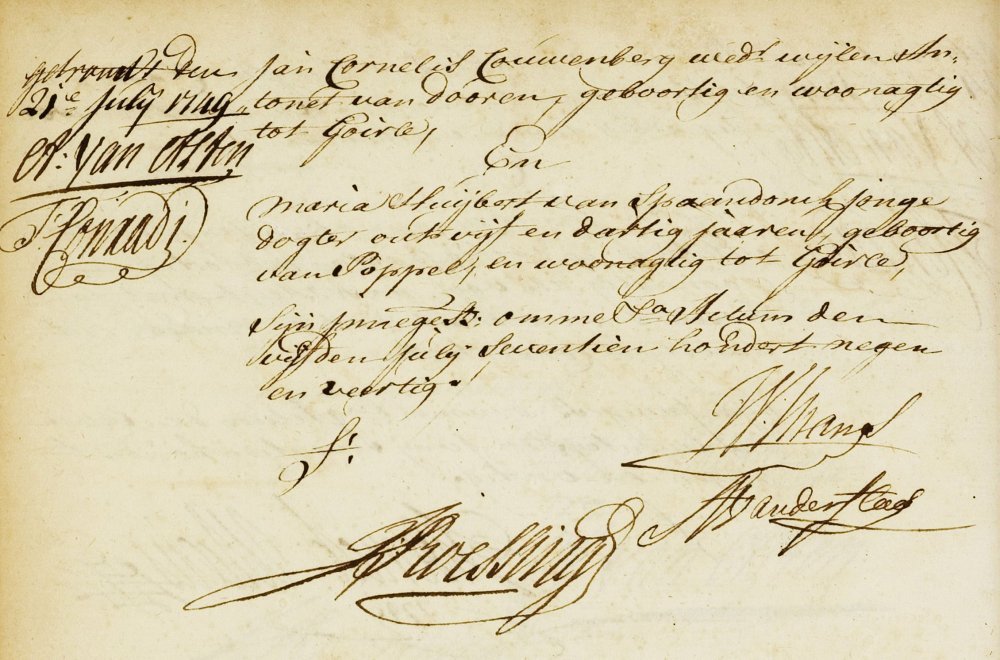 getrouwt den
21e July 1749
A: van Asten
J: Conradi.
Jan Cornelis Couwenberg wedr. wijlen An-
tonet van dooren, geboortig en woonagtig
tot Goirle,
En
Maria Huijbert van Spaandonk jonge
dogter out vijf en dartig jaaren, geboortig
van Poppel, en woonagtig tot Goirle,
sijn omme den
vijfden July Seventien hondert negen
en veertig.